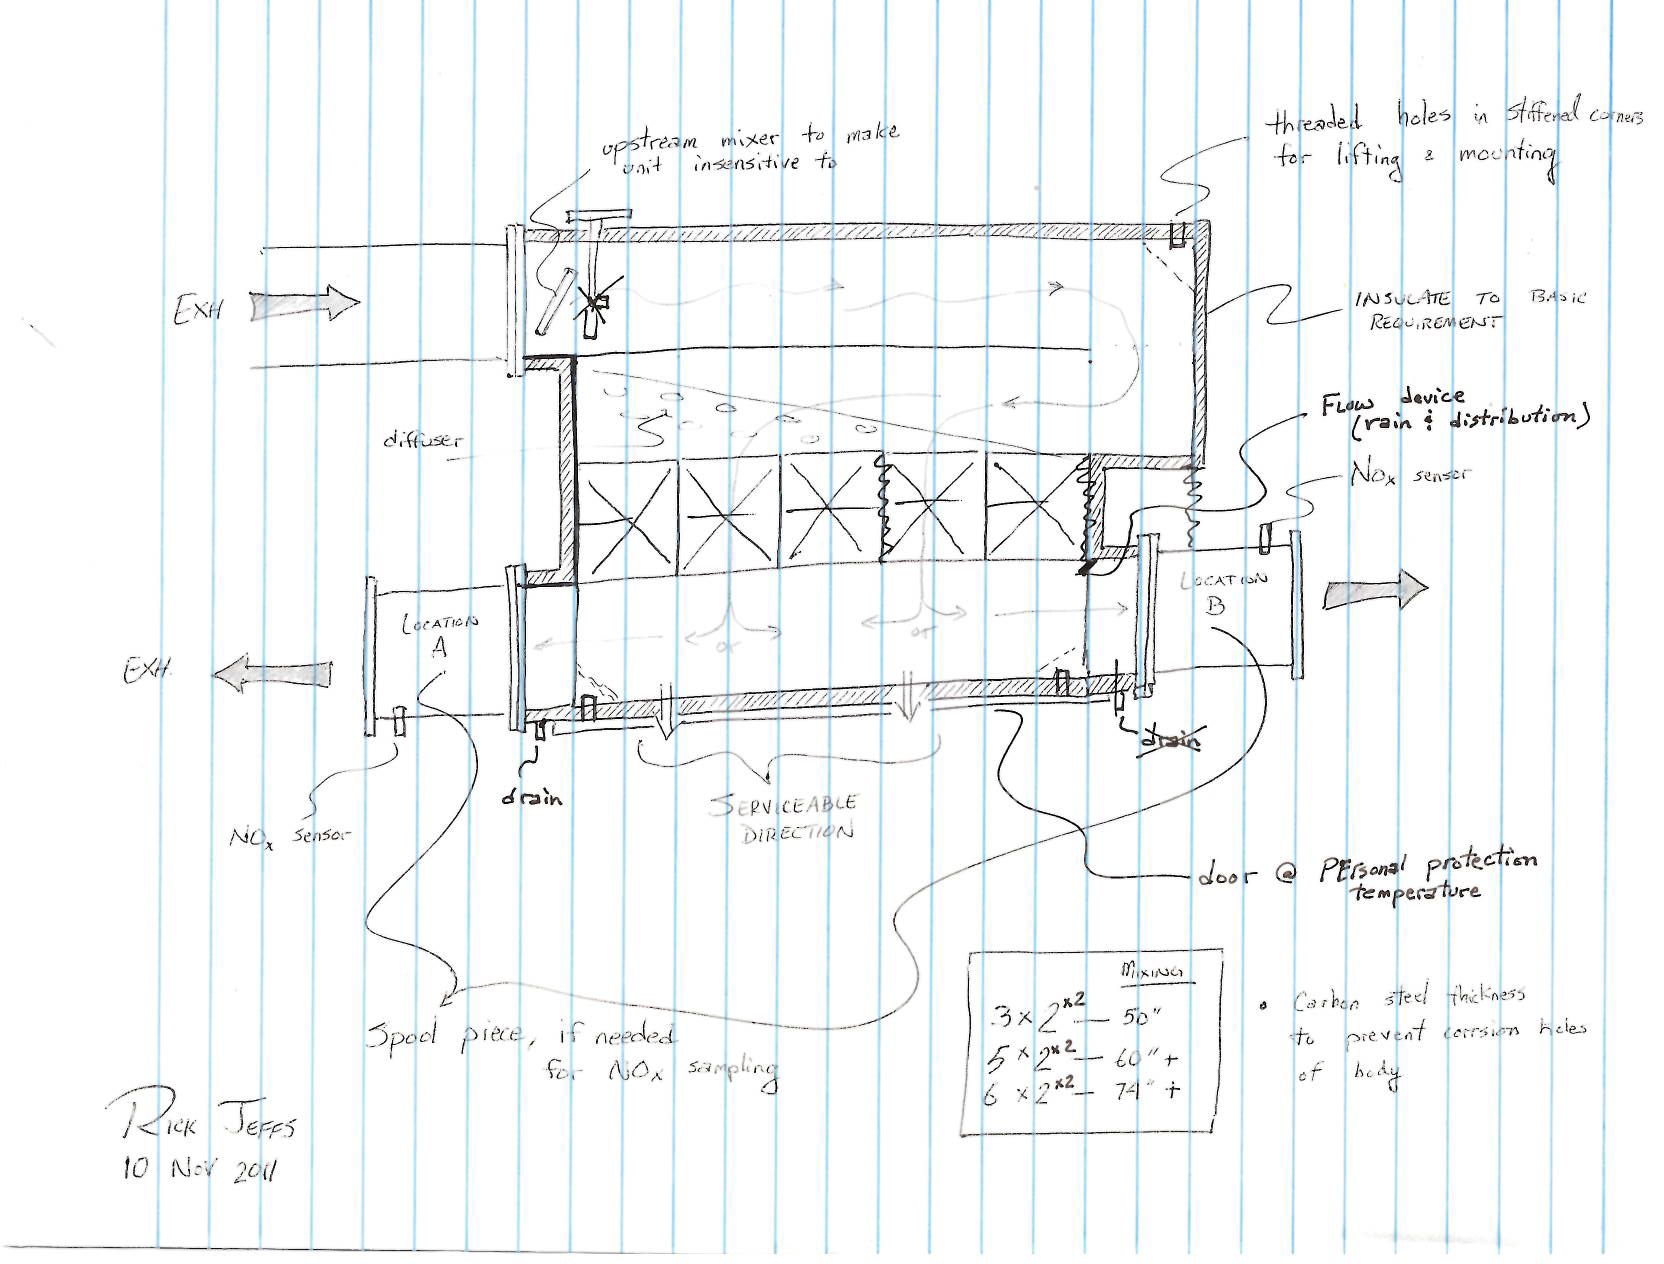 upstream mixer to make
unit insensitive to
threaded holes in stiffened corners
for lifting & mounting
EXH
INSULATE TO BASIC
REQUIREMENT
Flow device
(rain & distribution)
NOx sensor
diffuser
LOCATION
A
LOCATION
B
or
or
EXH.
drain
drain
NOx sensor
SERVICEABLE
DIRECTION
door @ PErsonal protection
temperature
Spool piece, if needed
for NOx sampling
MIXING
3 x 2 x2 — 50"
5 x 2 x2 — 60" +
6 x 2 x2 — 74" +
• Carbon steel thickness
to prevent corrsion holes
of body
RICK JEFFS
10 NOV 2011